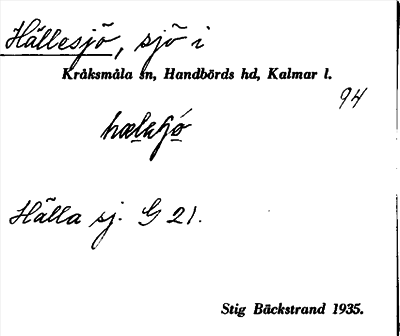 Hällesjö, sjö i
Kråksmåla sn, Handbörds hd, Kalmar l.
94
Hälla sj. G 21.
Stig Bäckstrand 1935.